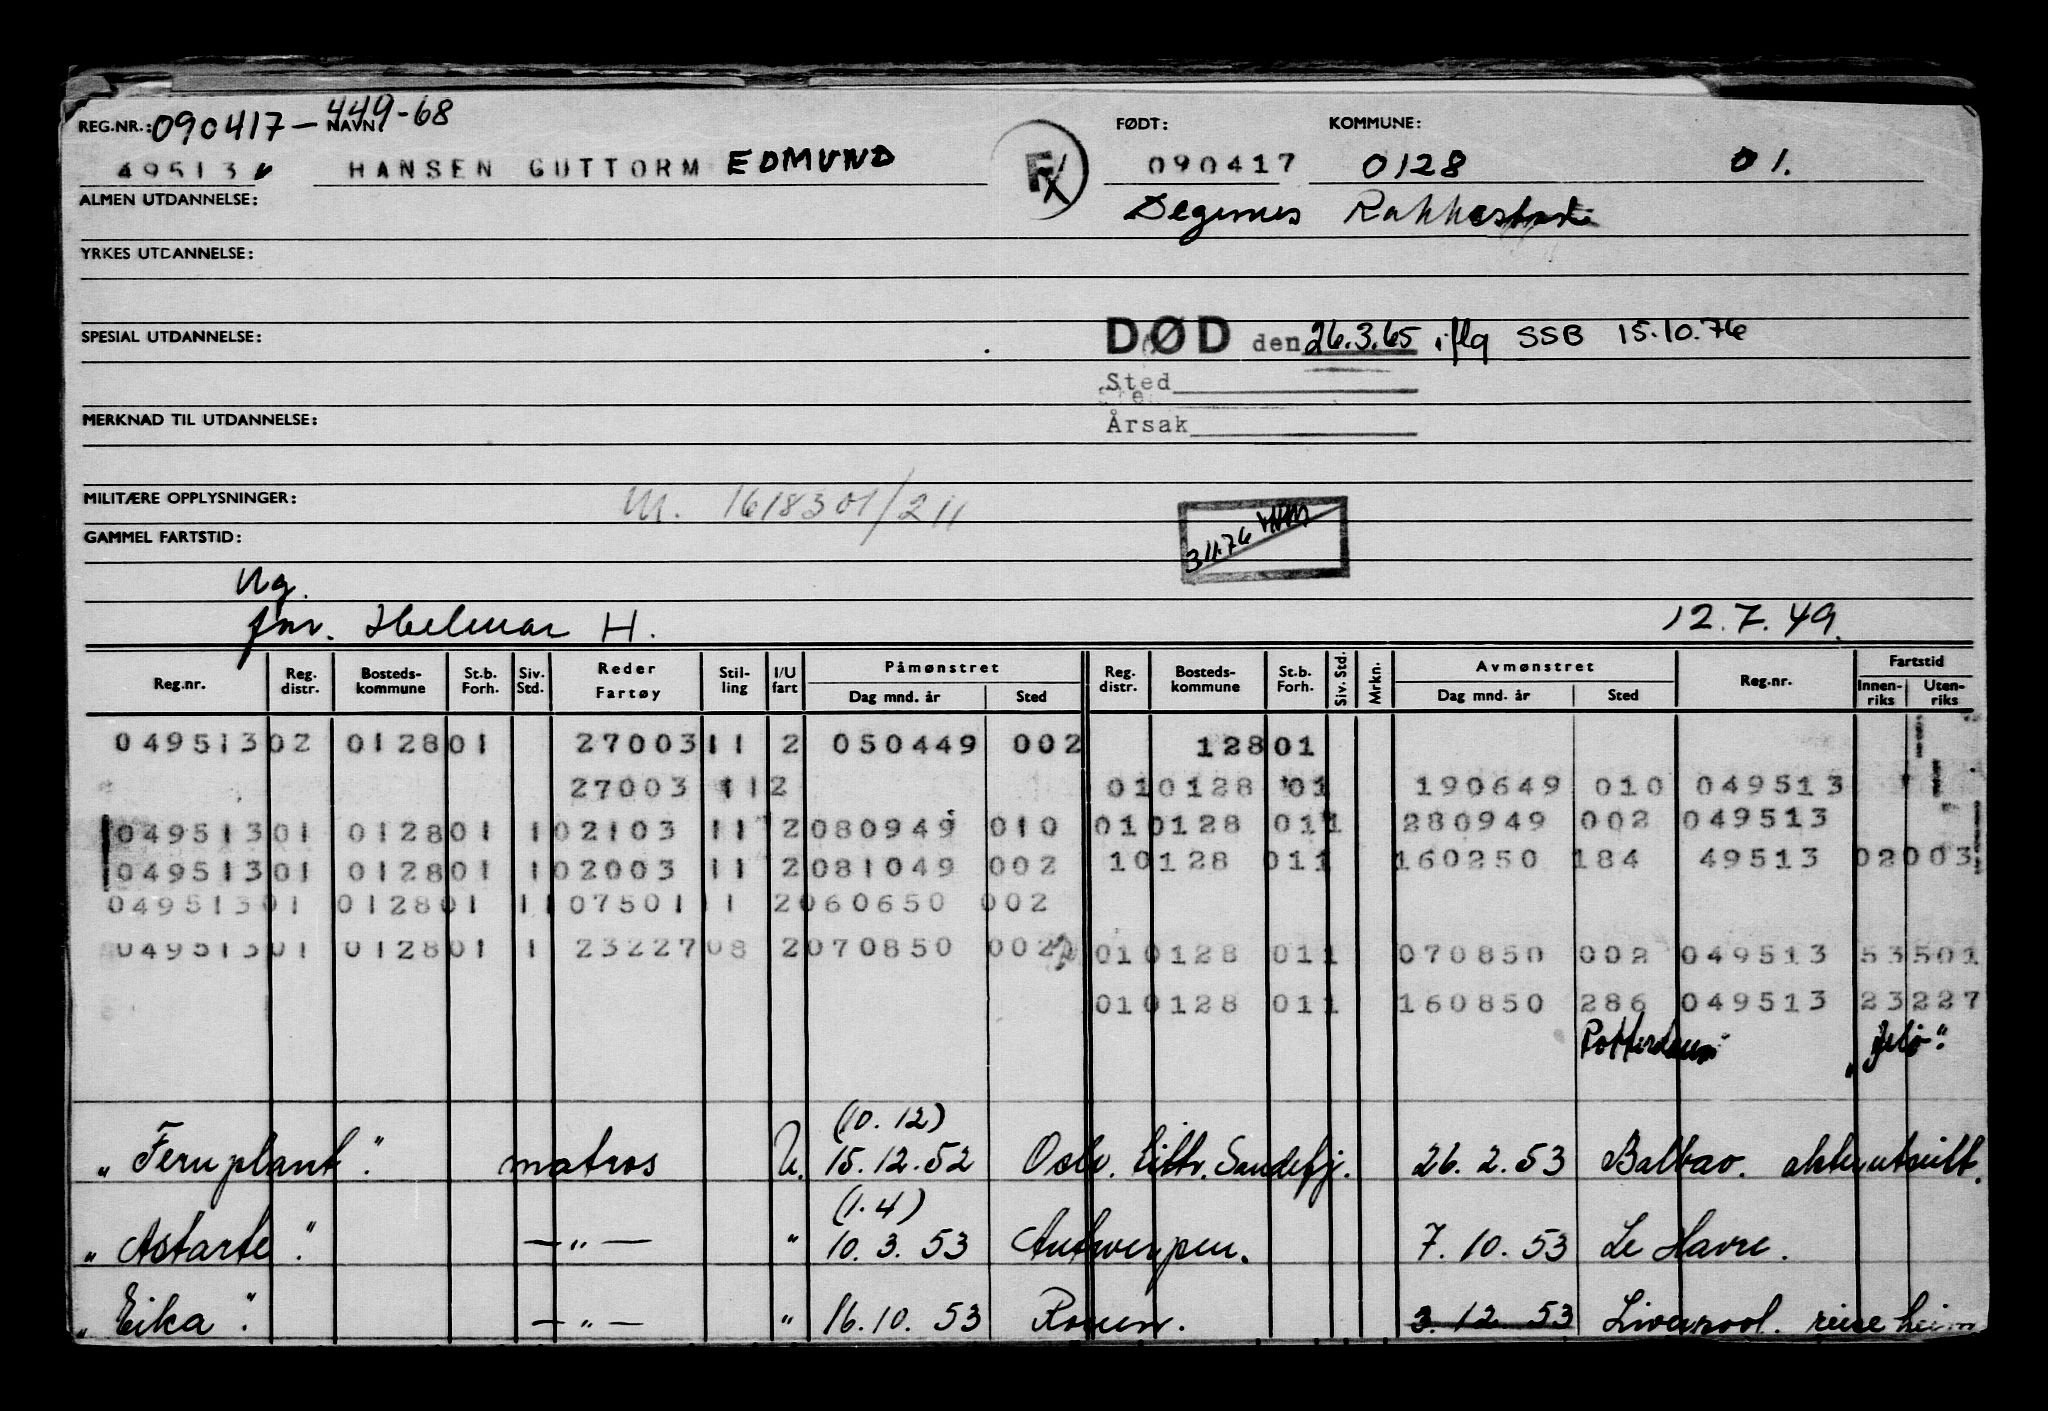 REG.NR.: 090417-449-68 NAVN: FØDT: KOMMUNE:
49513 HANSEN GUTTORM EDMUND 090417 0128 01.
ALMEN UTDANNELSE: Degernes Rakkestad
YRKES UTDANNELSE:
SPESIAL UTDANNELSE: DØD den 26.3.65 iflg SSB 15.10.76
Sted
MERKNAD TIL UTDANNELSE: Årsak
MILITÆRE OPPLYSNINGER: M. 1618301/211
GAMMEL FARTSTID: 31176
Ug.
for. Helmar H. 12.7.49.
Reg.nr. Reg. distr. Bosteds-kommune St.b. Forh. Siv. Std. Reder Fartøy Stil-ling I/U fart Påmønstret Dag mnd. år Sted Reg. distr. Bosteds-kommune St.b. Forh. Siv. Std. Mrkn. Avmønstret Dag mnd. år Sted Reg.nr. Fartstid Innen-riks Uten-riks
049513 02 0128 01 27003 11 2 050449 002 128 01
27003 11 2 01 0128 01 190649 010 049513
049513 01 0128 01 1 02103 11 2 080949 010 01 0128 01 1 280949 002 049513
049513 01 0128 01 1 02003 11 2 081049 002 1 0128 01 1 160250 184 49513 02 003
049513 01 0128 01 1 107501 11 2 060650 002
049513 01 0128 01 1 23227 08 2 070850 002 01 0128 01 1 070850 002 049513 53 501
01 0128 01 1 160850 286 049513 23 227
Rotterdam "Jelø".
(10.12)
"Fernplant". matros U. 15.12.52 Oslo. Eittr. Sandefj. 26.2.53 Balboa. akterutseilt.
(1.4)
"Astarte". —"— " 10.3.53 Antwerpen. 7.10.53 Le Havre.
"Eika". —"— " 16.10.53 Rouen. 3.12.53 Liverpool. reise heim